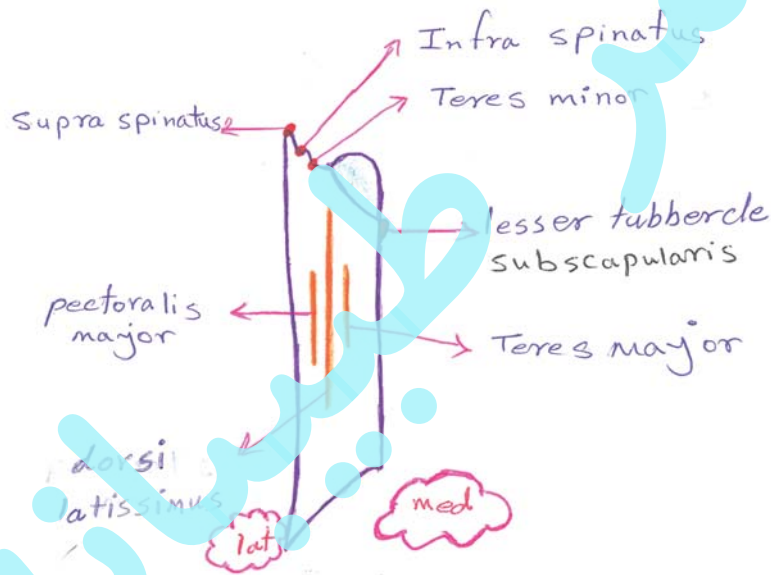 Infra spinatus
Teres minor
Supra spinatus
lesser tubbercle
subscapularis
pectoralis
major
Teres major
dorsi
latissimus
lat
med